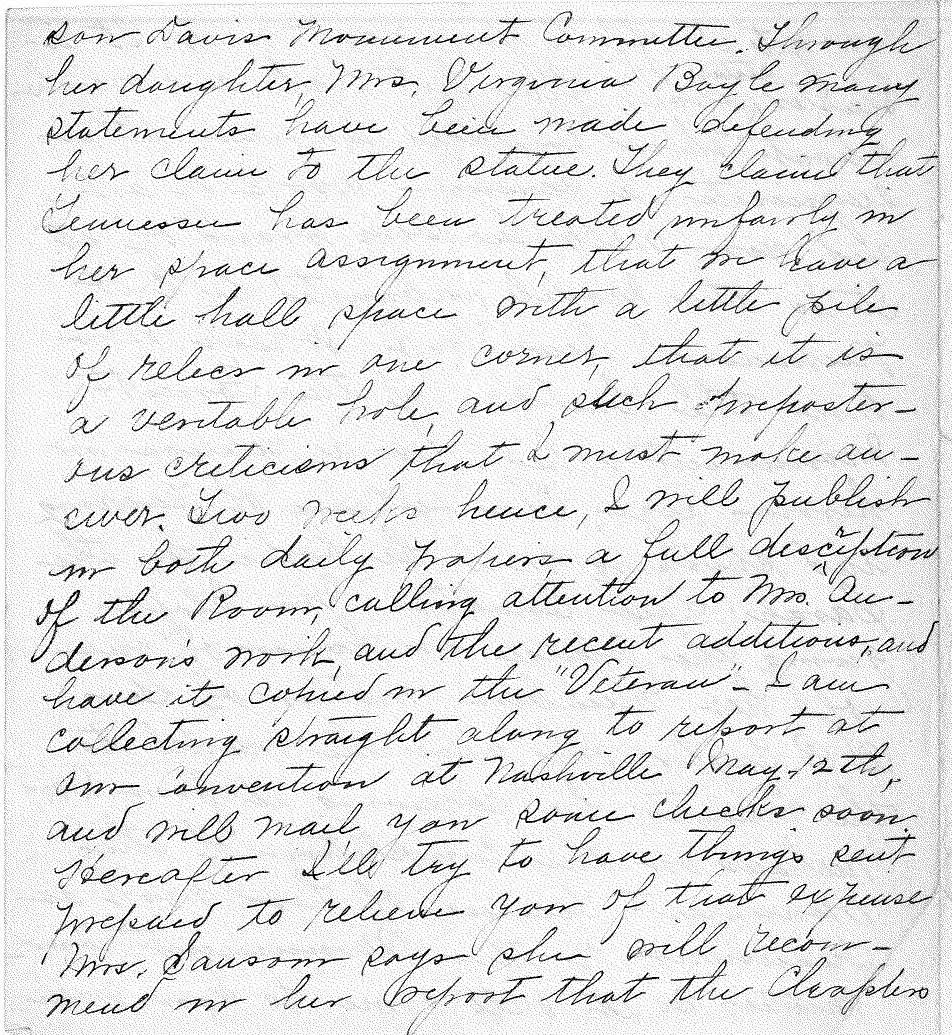 son Davis Monument Committee. Through
her daughter, Mrs. Virginia Boyle many
statements have been made defending
her claim to the statue. They claim that
Tennessee has been treated unfairly in
her space assignment, that we have a
little hall space with a little pile
of relics in one corner, that it is
a veritable hole, and such preposter-
ous criticisms that I must make an-
swer. Two weeks hence, I will publish
in both daily papers a full description
of the Room, calling attention to Mrs. An-
derson's work, and the recent additions, and
have it copied in the "Veteran" - I am
collecting straight along to report at
our convention at Nashville May 12th,
and will mail you some checks soon.
Hereafter I'll try to have things sent
prepaid to relieve you of that expense
Mrs. Sansom says she will recom-
mend in her report that the Chapters